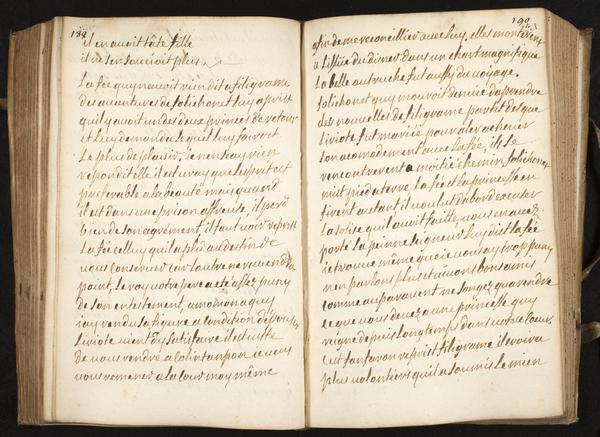 189
il en avoit tâte fille
il ne s'en soucioit plus.
La fée quy n'avoit rien dit a filigrame
des avantures de folichonet luy aprist
qu'il y avoit un des deux princes de retour
et luy demanda le quel luy feroit
le plus de plaisir, je n'en sçay rien
repondit elle il est vray que l'esprit est
preferable a la beauté mais quand
il est dans une prison affreuse, il perd
bien de son agrement, il faut voir reprit
La fée celluy qu'il a plu au destin de
vous conserver car l'autre ne reviendra
point, Le roy votre pere a eté assez puny
de son entestement, a mon
j'ay rendu sa figure a condition d'épouser
Liriote vient d'y satisfaire il est
de vous rendre a je veux
vous remener a la cour moy même
190
afin de me reconcillier avec luy, elles monterent
a l'issüe du disner dans un char magnifique
La belle autruche fut aussy du voyage.
folichonet quy mouroit d'envie d'aprendre
des nouvelles de filigrame partit des que
Liriote fut mariée pour aler achever
son acomodement avec la fée, ils se
rencontrerent a moitié chemin, folichonet
mit pied a terre La fée et la princesse en
firent autant il voulut d'abord excuser
La sotise qu'il avoit faitte, vous en avez
porté la peinne seigneur luy dist la fée
je trouve même que je vous ay trop puny
n'en parlons plus et vivons bons amis
comme auparavent ne songez qu'a rendre
ce que vous devez a une princesse quy
reigne depuis longtemps dans votre coeur.
reprist filigrame il recevra
plus volontiers qu'il a soumis le mien